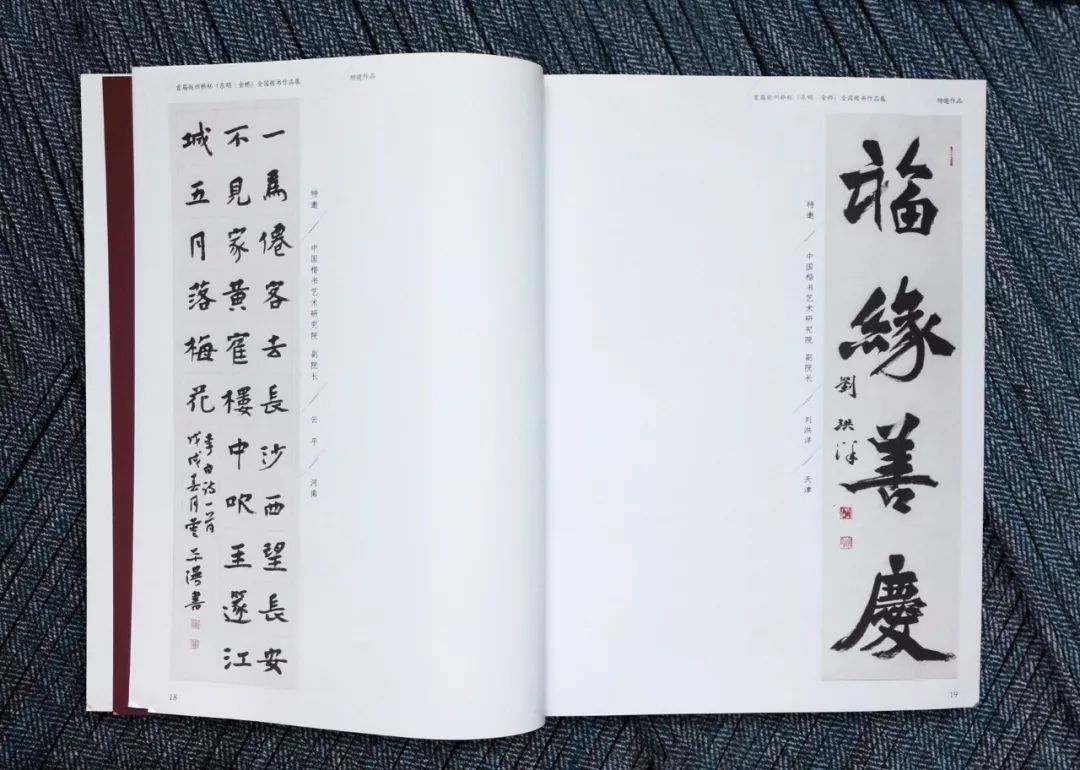 首届赵州桥杯（东明·金桥）全国楷书作品展
特邀作品
一爲僊客去長沙西望長安
不見家黄寉樓中吹玉篴江
城五月落梅花
李白诗一首
戊戌春月雲平漫書
特邀／中国楷书艺术研究院 副院长／云 平／河南
18
首届赵州桥杯（东明·金桥）全国楷书作品展
特邀作品
福緣善慶
劉洪洋
特邀／中国楷书艺术研究院 副院长／刘洪洋／天津
19